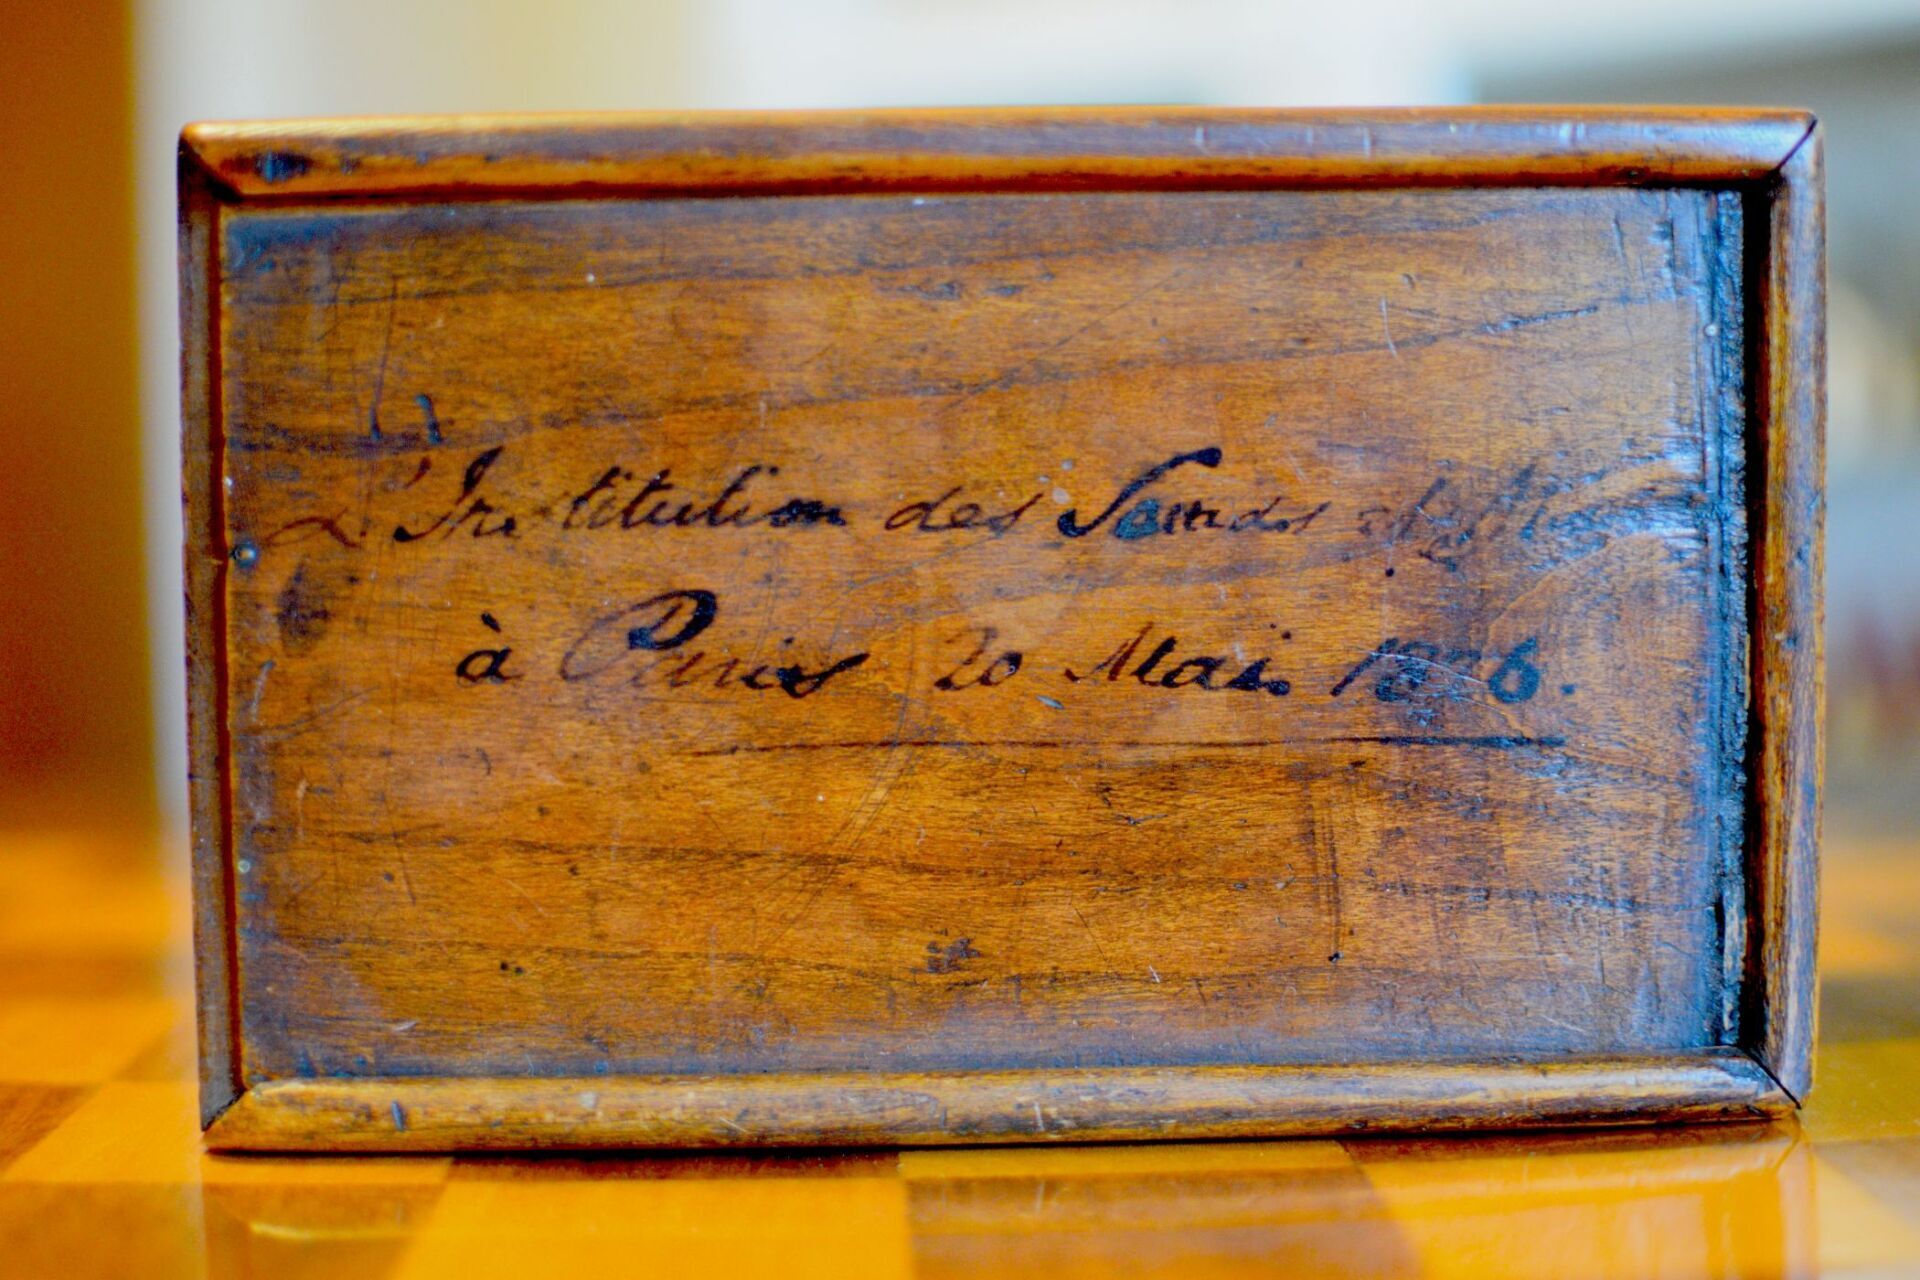 L'Institution des Sourds et
à Paris 20 Mai 1826.